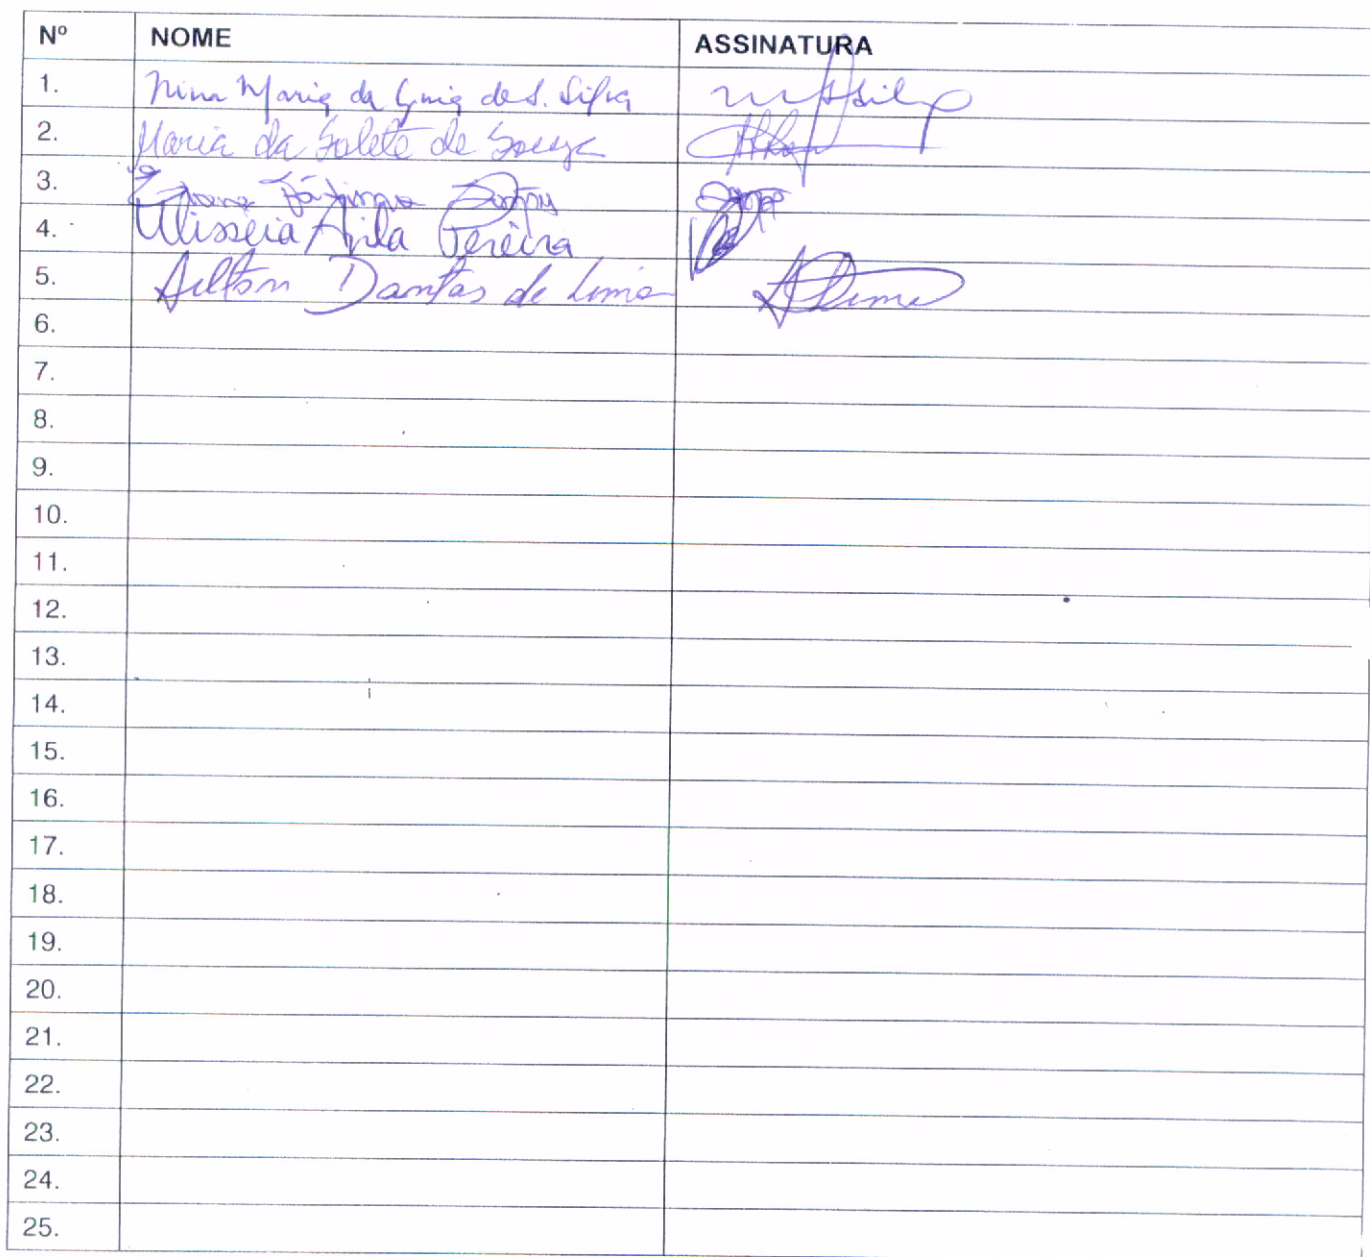 Nº NOME ASSINATURA
1. Nina Maria da Guia de S. Silva
2. Maria da Salete de Souza
3. Fátima
4. Ulisséia Avila Pereira
5. Ailton Dantas de Lima ALima
6.
7.
8.
9.
10.
11.
12.
13.
14.
15.
16.
17.
18.
19.
20.
21.
22.
23.
24.
25.